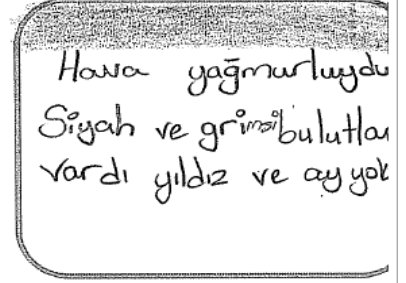 Hava yağmurluydu
Siyah ve grimsi bulutlar
vardı yıldız ve ay yok